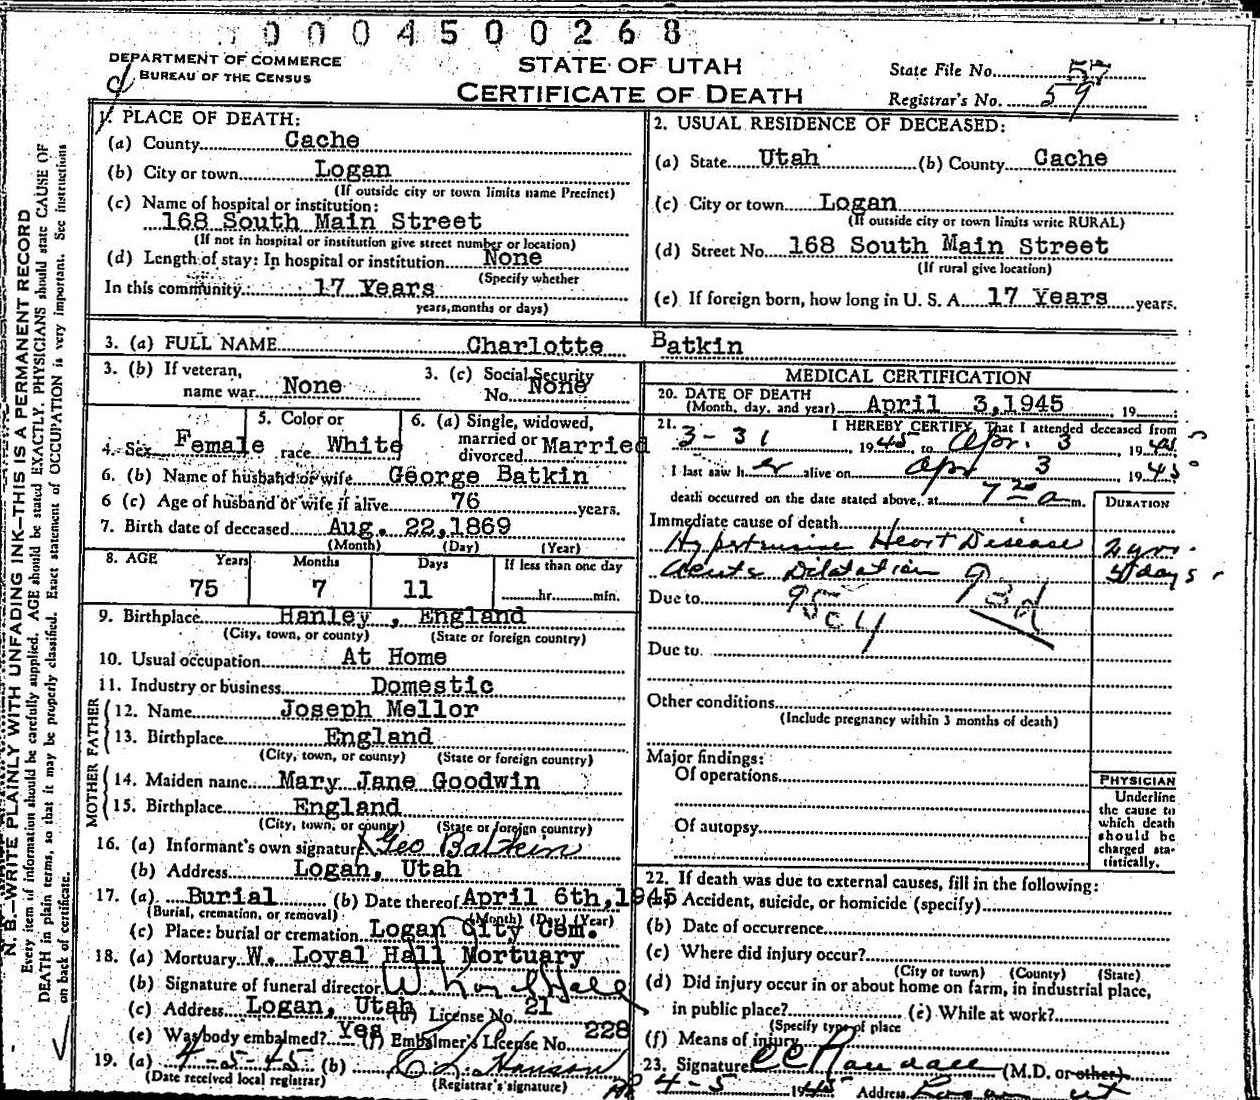 0004500268
DEPARTMENT OF COMMERCE
BUREAU OF THE CENSUS
STATE OF UTAH
CERTIFICATE OF DEATH
State File No. 57
Registrar's No. 59
N. B.—WRITE PLAINLY WITH UNFADING INK—THIS IS A PERMANENT RECORD
Every item if information should be carefully supplied. AGE should be stated EXACTLY. PHYSICIANS should state CAUSE OF
DEATH in plain terms, so that it may be properly classified. Exact statement of OCCUPATION is very important. See instructions
on back of certificate.
1. PLACE OF DEATH:
(a) County Cache
(b) City or town Logan
(If outside city or town limits name Precinct)
(c) Name of hospital or institution:
168 South Main Street
(If not in hospital or institution give street number or location)
(d) Length of stay: In hospital or institution None
(Specify whether
In this community 17 Years
years, months or days)
2. USUAL RESIDENCE OF DECEASED:
(a) State Utah (b) County Cache
(c) City or town Logan
(If outside city or town limits write RURAL)
(d) Street No. 168 South Main Street
(If rural give location)
(e) If foreign born, how long in U. S. A. 17 Years years.
3. (a) FULL NAME Charlotte Batkin
3. (b) If veteran, name war None
3. (c) Social Security No. None
4. Sex Female
5. Color or race White
6. (a) Single, widowed, married or divorced Married
6. (b) Name of husband or wife George Batkin
6 (c) Age of husband or wife if alive 76 years.
7. Birth date of deceased Aug. 22,1869
(Month) (Day) (Year)
8. AGE Years Months Days If less than one day
75 7 11 hr. min.
9. Birthplace Hanley , England
(City, town, or county) (State or foreign country)
10. Usual occupation At Home
11. Industry or business Domestic
FATHER
12. Name Joseph Mellor
13. Birthplace England
(City, town, or county) (State or foreign country)
MOTHER
14. Maiden name Mary Jane Goodwin
15. Birthplace England
(City, town, or county) (State or foreign country)
16. (a) Informant's own signature Geo Batkin
(b) Address Logan, Utah
17. (a) Burial (b) Date thereof April 6th,1945
(Burial, cremation, or removal) (Month) (Day) (Year)
(c) Place: burial or cremation Logan City Cem.
18. (a) Mortuary W. Loyal Hall Mortuary
(b) Signature of funeral director W. Loyal Hall
(c) Address Logan, Utah (d) License No. 21
(e) Was body embalmed? Yes (f) Embalmer's License No. 228
19. (a) 4-5-45 (b) Hanson
(Date received local registrar) (Registrar's signature)
MEDICAL CERTIFICATION
20. DATE OF DEATH
(Month, day, and year) April 3,1945 19
21. I HEREBY CERTIFY, That I attended deceased from
3-31 1945 to Apr. 3 1945
I last saw her alive on Apr 3 1945
death occurred on the date stated above, at 7 20 a m.
DURATION
Immediate cause of death
Hypertensive Heart Disease 2 yrs.
Acute Dilatation days
Due to
93d
Due to
Other conditions
(Include pregnancy within 3 months of death)
Major findings:
Of operations
Of autopsy
PHYSICIAN
Underline
the cause to
which death
should be
charged sta-
tistically.
22. If death was due to external causes, fill in the following:
Accident, suicide, or homicide (specify)
(b) Date of occurrence
(c) Where did injury occur?
(City or town) (County) (State)
(d) Did injury occur in or about home on farm, in industrial place,
in public place? (e) While at work?
(Specify type of place
(f) Means of injury
23. Signature Randall (M.D. or other)
4-5 1945 Address Logan ut